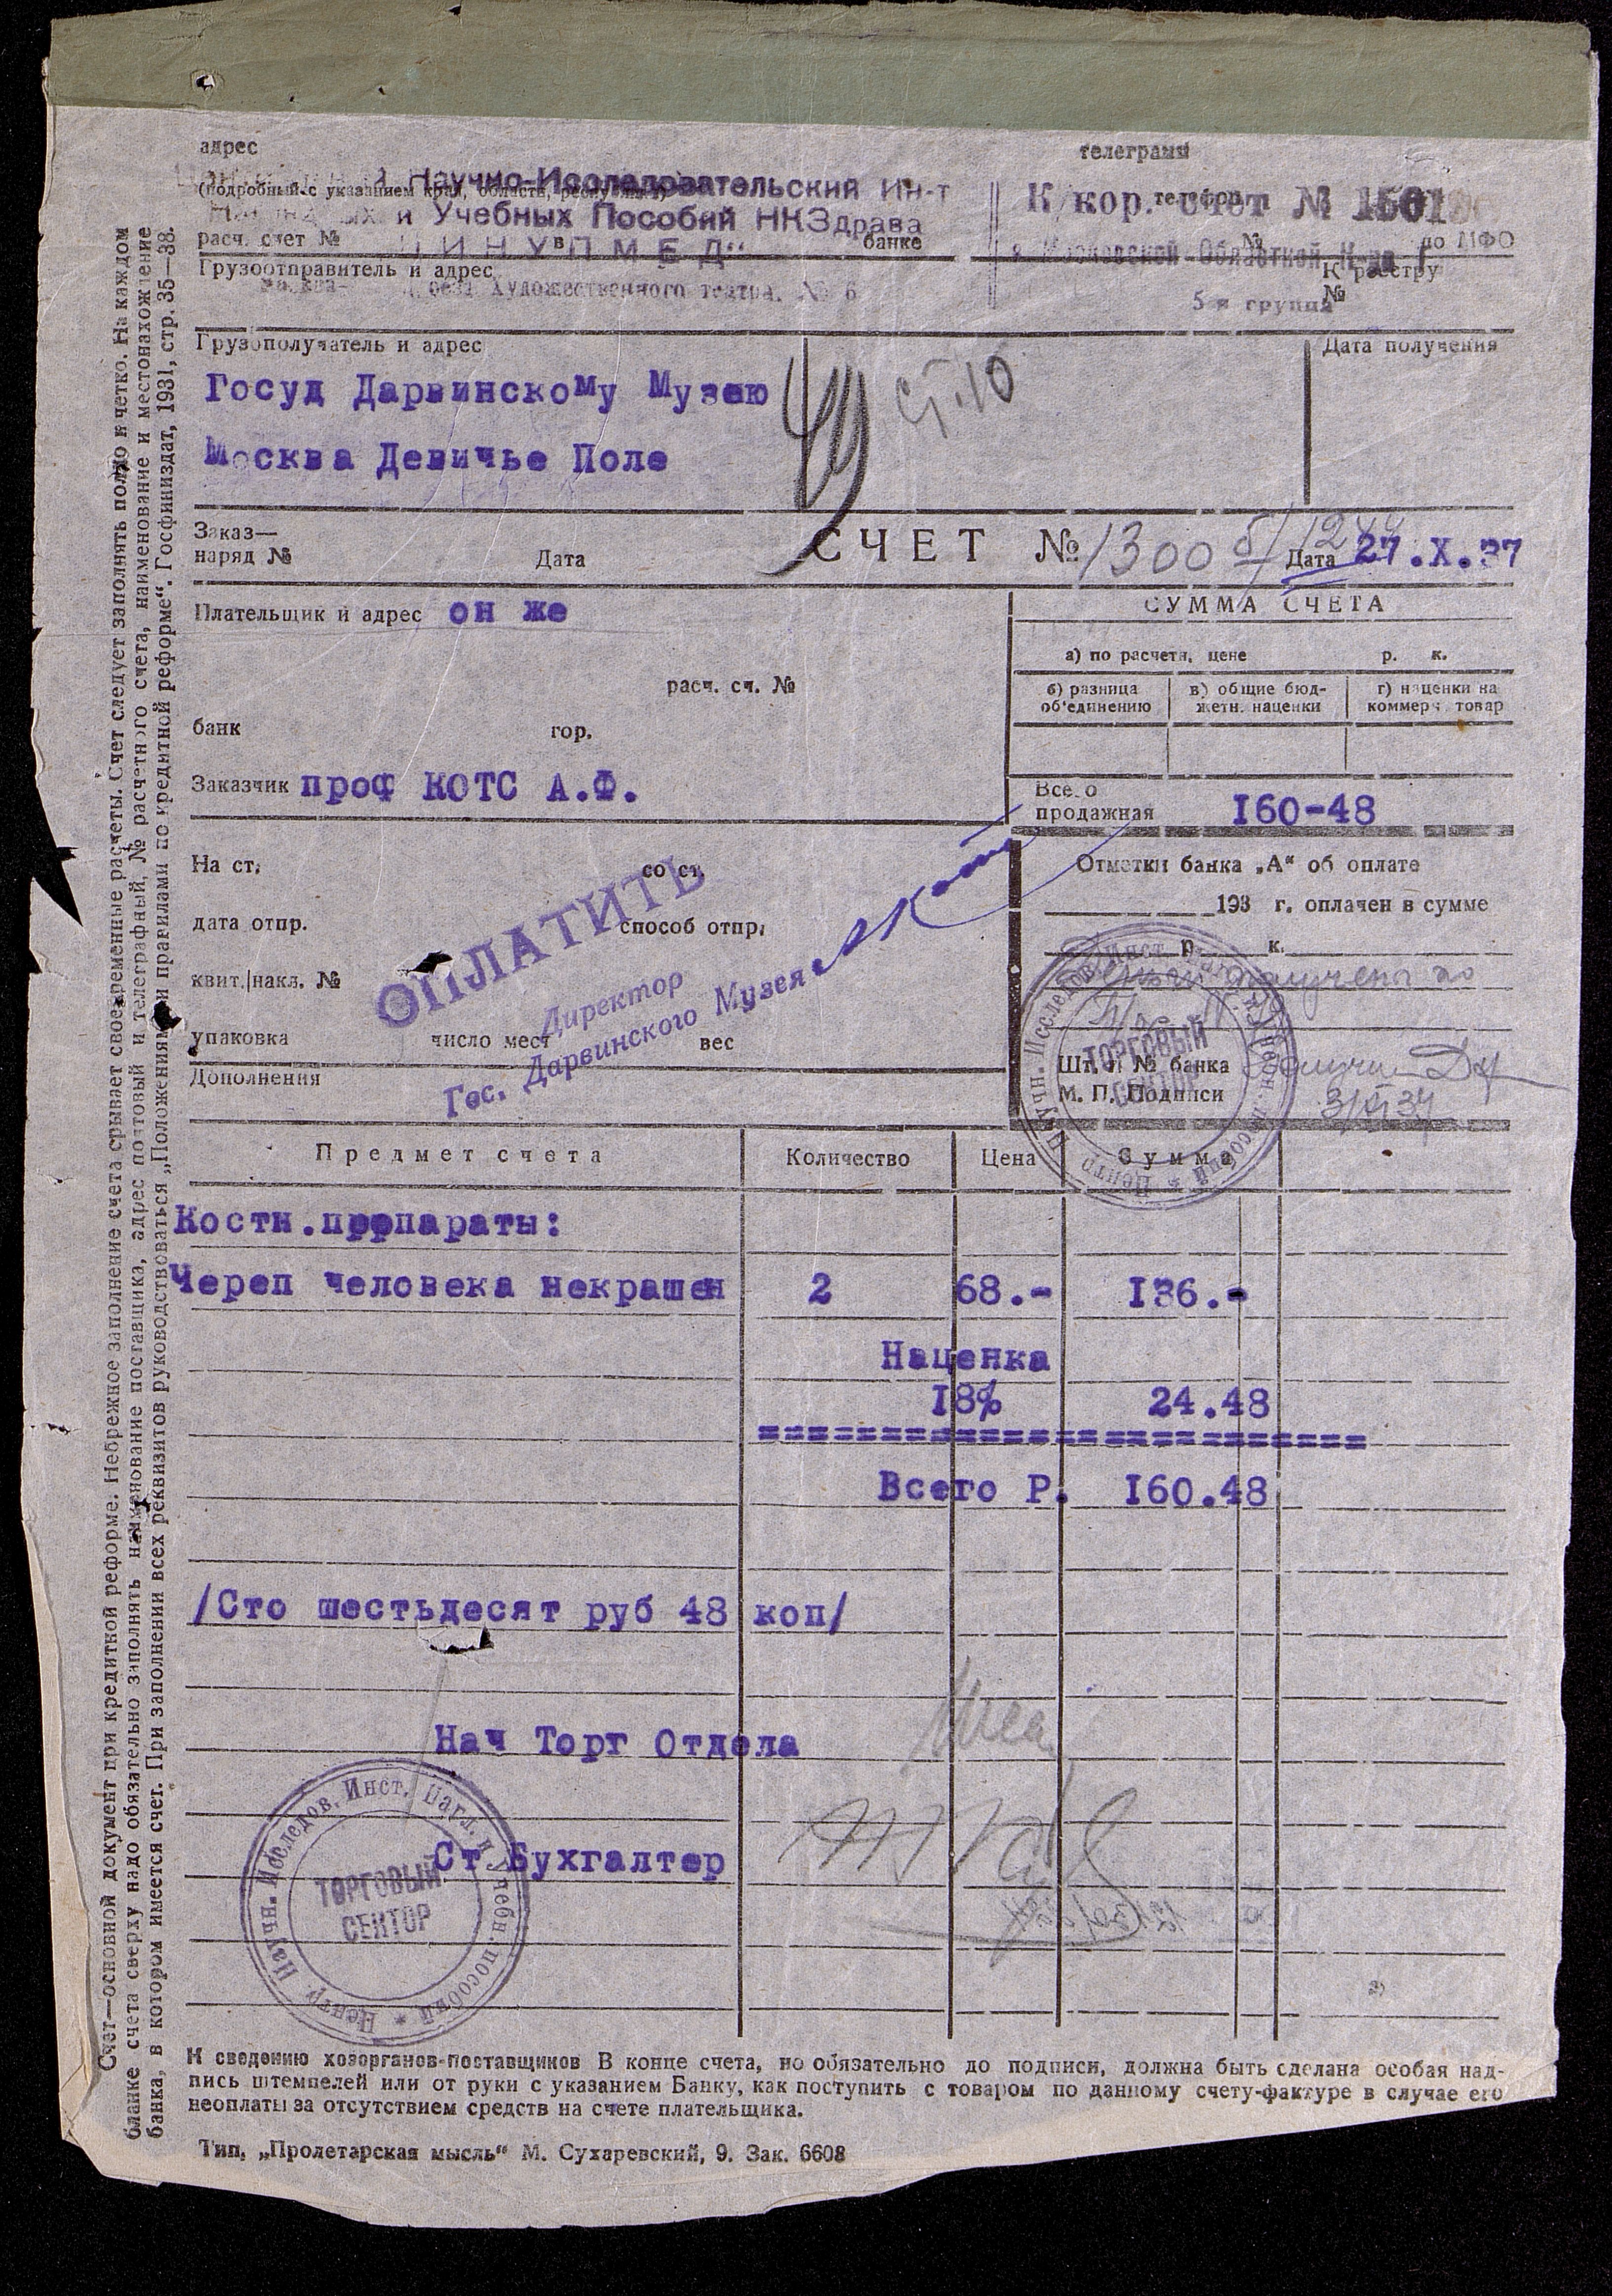 адрес
телеграмм
Научно-Исследовательский Ин-т
(подробный с указанием края, области, республики)
и Учебных Пособий НКЗдрава
К кор. счет № 1501
телефон
расч. счет № в банке
„ЦИНУПМЕД“
№ по МФО
Московской Областной
Грузоотправитель и адрес
К реестру
№
Художественного театра, № 6
5 я группа
Грузополучатель и адрес
Дата получения
Госуд Дарвинскому Музею
49
Ст.10
Москва Девичье Поле
Заказ—
наряд № Дата
СЧЕТ № 1300 Дата 27.X.37
Плательщик и адрес он же
СУММА СЧЕТА
а) по расчетн, цене р. к.
расч. сч. №
б) разница об'единению
в) общие бюд-жетн. наценки
г) наценки на коммерч товар
банк гор.
Заказчик проф КОТС А.Ф.
Всего продажная 160-48
На ст. со ст.
Отметки банка „А“ об оплате
193 г. оплачен в сумме
р. к.
дата отпр. способ отпр.
ОПЛАТИТЬ
Директор
Гос. Дарвинского Музея
квит.|накл. №
упаковка число мест вес
получена
Шт. и № банка
М. П. Подписи
Дополнения
Научн. Исследов. Инст. Нагл. и Учебн. пособий * Центр.
ТОРГОВЫЙ
СЕКТОР
Предмет счета Количество Цена Сумма
Костн.препараты:
Череп человека некрашен 2 68.- 136.-
Наценка
18% 24.48
=========================
Всего Р. 160.48
/Сто шестьдесят руб 48 коп/
Нач Торг Отдела
Ст Бухгалтер
Центр. Научн. Исследов. Инст. Нагл. и Учебн. пособий *
ТОРГОВЫЙ
СЕКТОР
К сведению хозорганов-поставщиков В конце счета, но обязательно до подписи, должна быть сделана особая над-
пись штемпелей или от руки с указанием Банку, как поступить с товаром по данному счету-фактуре в случае его
неоплаты за отсутствием средств на счете плательщика.
Тип. „Пролетарская мысль“ М. Сухаревский, 9. Зак. 6608
Счет—основной документ при кредитной реформе. Небрежное заполнение счета срывает своевременные расчеты. Счет следует заполнять полно и четко. На каждом
бланке счета сверху надо обязательно заполнять наименование поставщика, адрес почтовый и телеграфный, № расчетного счета, наименование и местонахождение
банка, в котором имеется счет. При заполнении всех реквизитов руководствоваться „Положениями и правилами по кредитной реформе“. Госфиниздат, 1931, стр. 35—38.